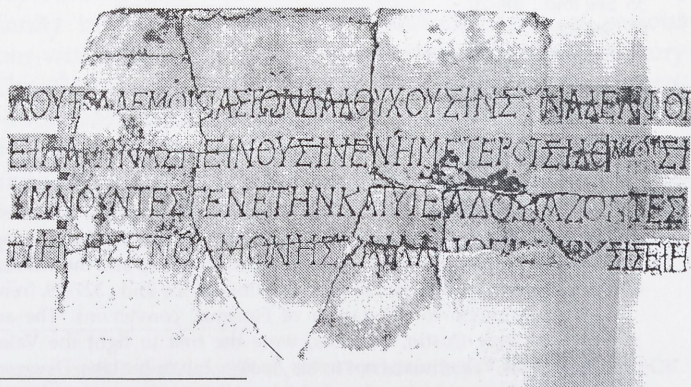 ΛΟΥΤΡΑΔΕΜΟΙΠΑΣΤΩΝΔΑΔΟΥΧΟΥΣΙΝΣΥΝΑΔΕΛΦΟΙ
ΕΙΛΑΠΙΝΑΣΠΕΙΝΟΥΣΙΝΕΝΗΜΕΤΕΡΟΙΣΙΔΟΜΟΙΣΙ
ΥΜΝΟΥΝΤΕΣΓΕΝΕΤΗΝΚΑΙΥΙΕΑΔΟΞΑΖΟΝΤΕΣ
ΗΣΕΝΘΑΜΟΝΗΣΚΑΙΑΛ ΣΙΣΕΙΗ